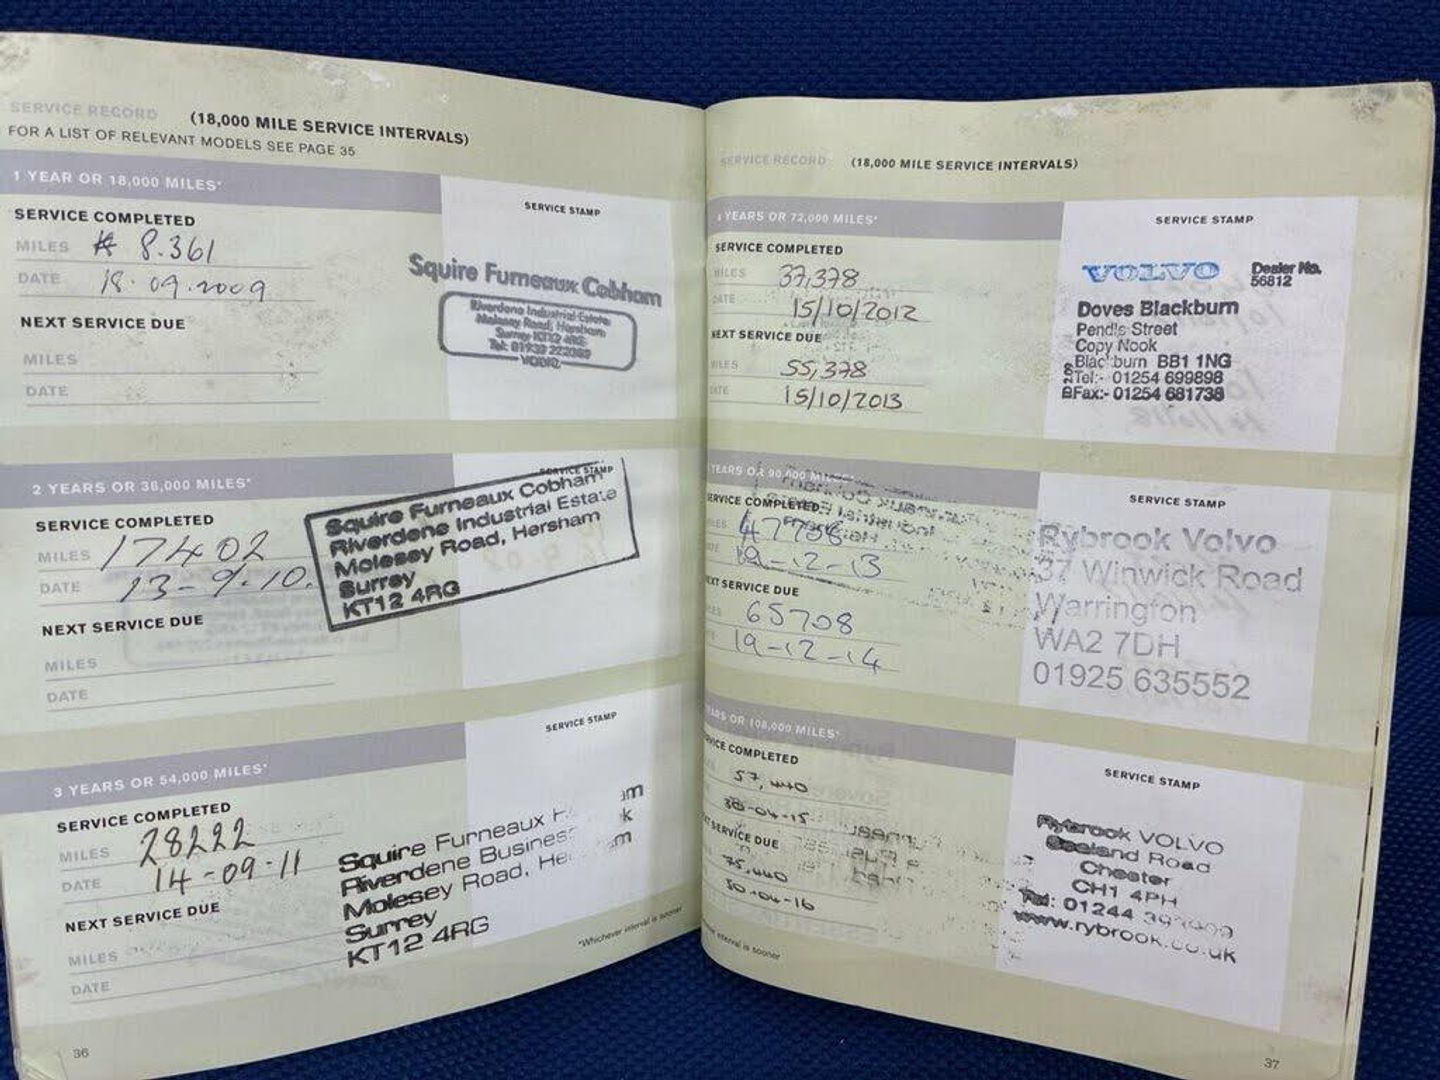 SERVICE RECORD (18,000 MILE SERVICE INTERVALS)
FOR A LIST OF RELEVANT MODELS SEE PAGE 35
1 YEAR OR 18,000 MILES*
SERVICE STAMP
SERVICE COMPLETED
MILES 8.361
DATE 18.09.2009
NEXT SERVICE DUE
MILES
DATE
Squire Furneaux Cobham
Riverdene Industrial Estate
Molesey Road, Hersham
Surrey KT12 4RG
2 YEARS OR 36,000 MILES*
SERVICE STAMP
SERVICE COMPLETED
MILES 17402
DATE 13-9-10.
NEXT SERVICE DUE
MILES
DATE
Squire Furneaux Cobham
Riverdene Industrial Estate
Molesey Road, Hersham
Surrey
KT12 4RG
3 YEARS OR 54,000 MILES*
SERVICE STAMP
SERVICE COMPLETED
MILES 28222
DATE 14-09-11
NEXT SERVICE DUE
MILES
DATE
Squire Furneaux
Riverdene Business
Molesey Road,
Surrey
KT12 4RG
*Whichever interval is sooner
36
SERVICE RECORD (18,000 MILE SERVICE INTERVALS)
YEARS OR 72,000 MILES*
SERVICE STAMP
SERVICE COMPLETED
MILES 37,378
DATE 15/10/2012
NEXT SERVICE DUE
MILES 55,378
DATE 15/10/2013
VOLVO Dealer No.
56812
Doves Blackburn
Street
Copy Nook
BB1 1NG
Tel:- 01254 699898
Fax:- 01254 681738
YEARS OR 90,000 MILES*
SERVICE STAMP
SERVICE COMPLETED
19-12-13
NEXT SERVICE DUE
65708
19-12-14
Rybrook Volvo
37 Winwick Road
Warrington
WA2 7DH
01925 635552
YEARS OR 108,000 MILES*
SERVICE STAMP
SERVICE COMPLETED
57,440
30-04-15
SERVICE DUE
75,440
30-04-16
Rybrook VOLVO
Sealand Road
Chester
CH1 4PH
Tel: 01244
www.rybrook.co.uk
interval is sooner
37